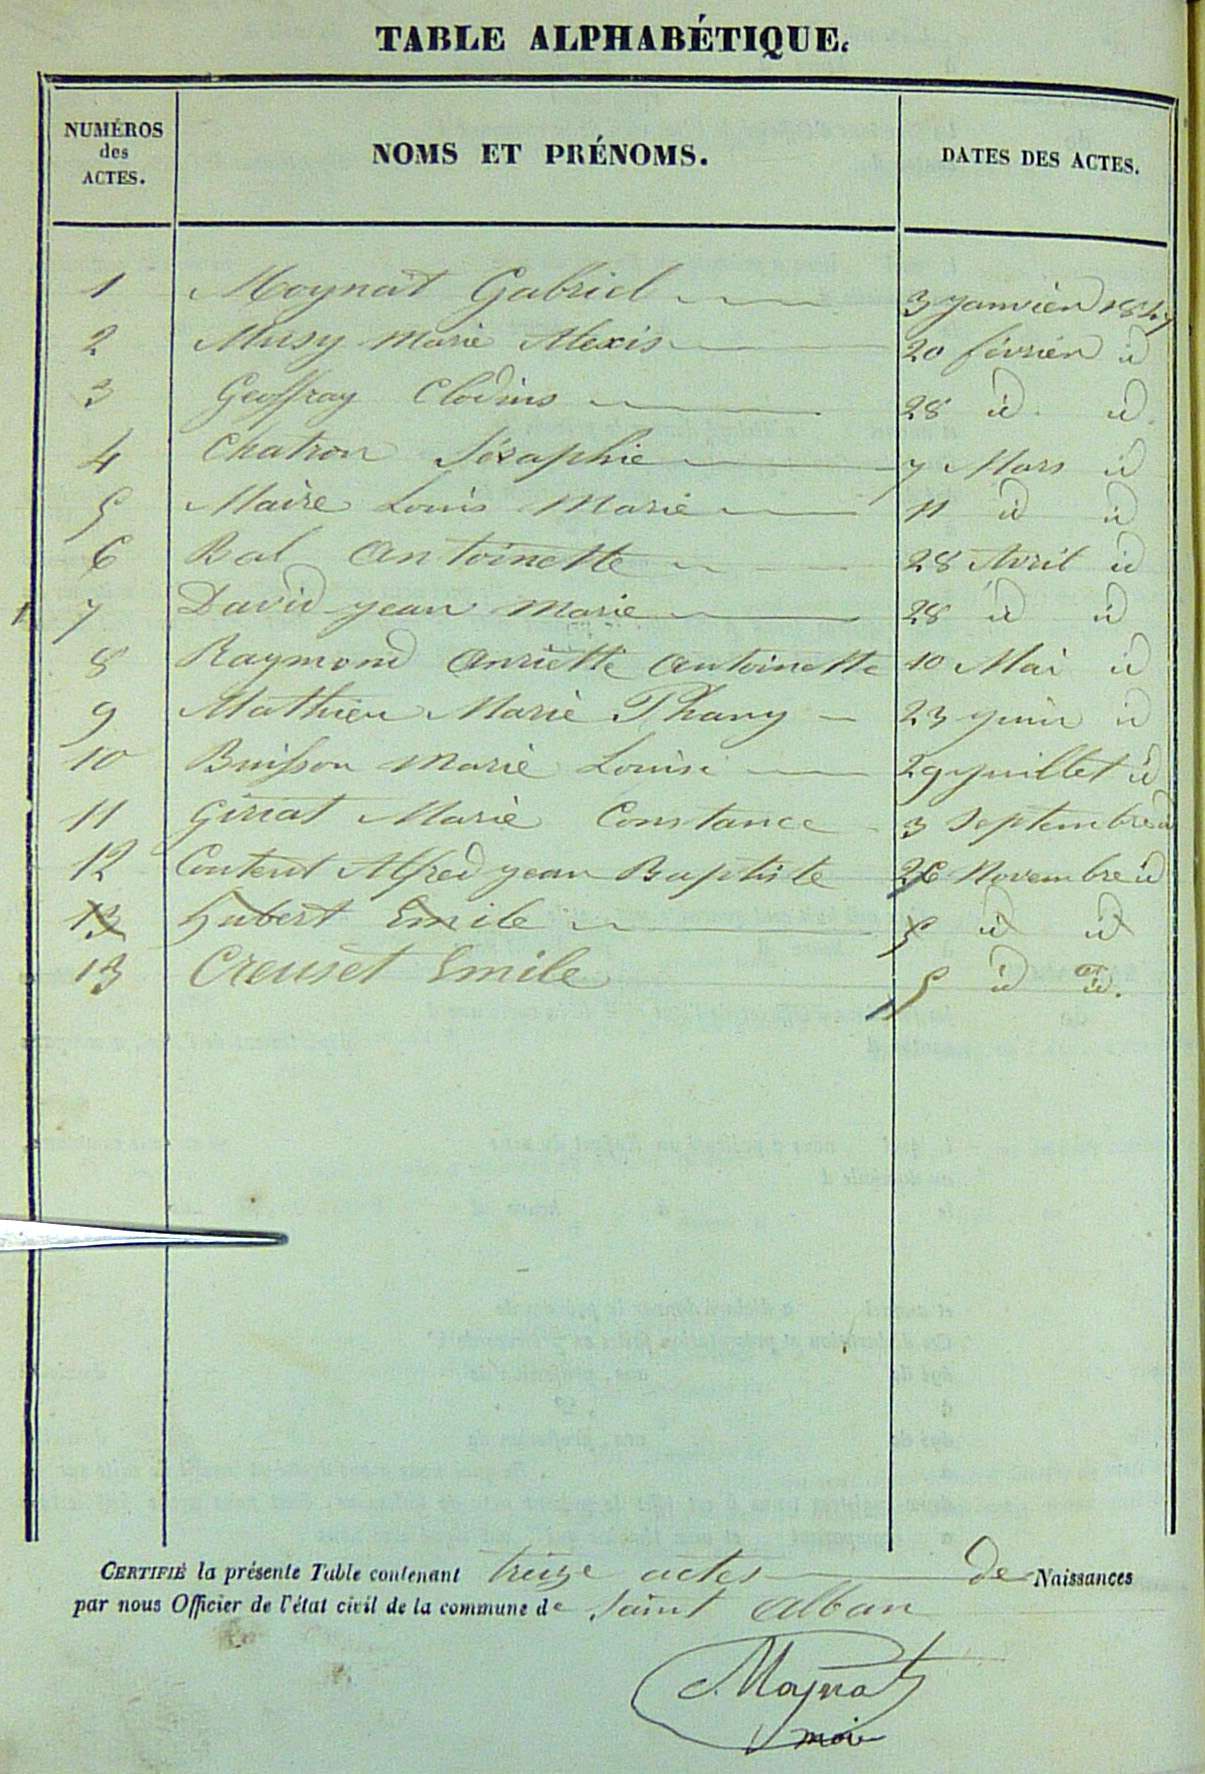 TABLE ALPHABÉTIQUE.
NUMÉROS des ACTES. NOMS ET PRÉNOMS. DATES DES ACTES.
1 Moynat Gabriel 3 janvier 1847
2 Musy Marie Alexis 20 février id
3 Geoffray Clodius 28 id id
4 Chatron Séraphie 7 Mars id
5 Maire Louis Marie 11 id id
6 Bal Antoinette 28 Avril id
7 David jean Marie 28 id id
8 Raymond Anriette Antoinette 10 Mai id
9 Mathieu Marie Phany 23 juin id
10 Buisson Marie Louise 29 juillet id
11 Giriat Marie Constance 3 Septembre id
12 Content Alfred jean Baptiste 26 Novembre id
13 hubert Emile 5 id id
13 Creuset Emile 5 id id.
CERTIFIÉ la présente Table contenant treize actes de Naissances
par nous Officier de l'état civil de la commune de Saint Alban
Moynat